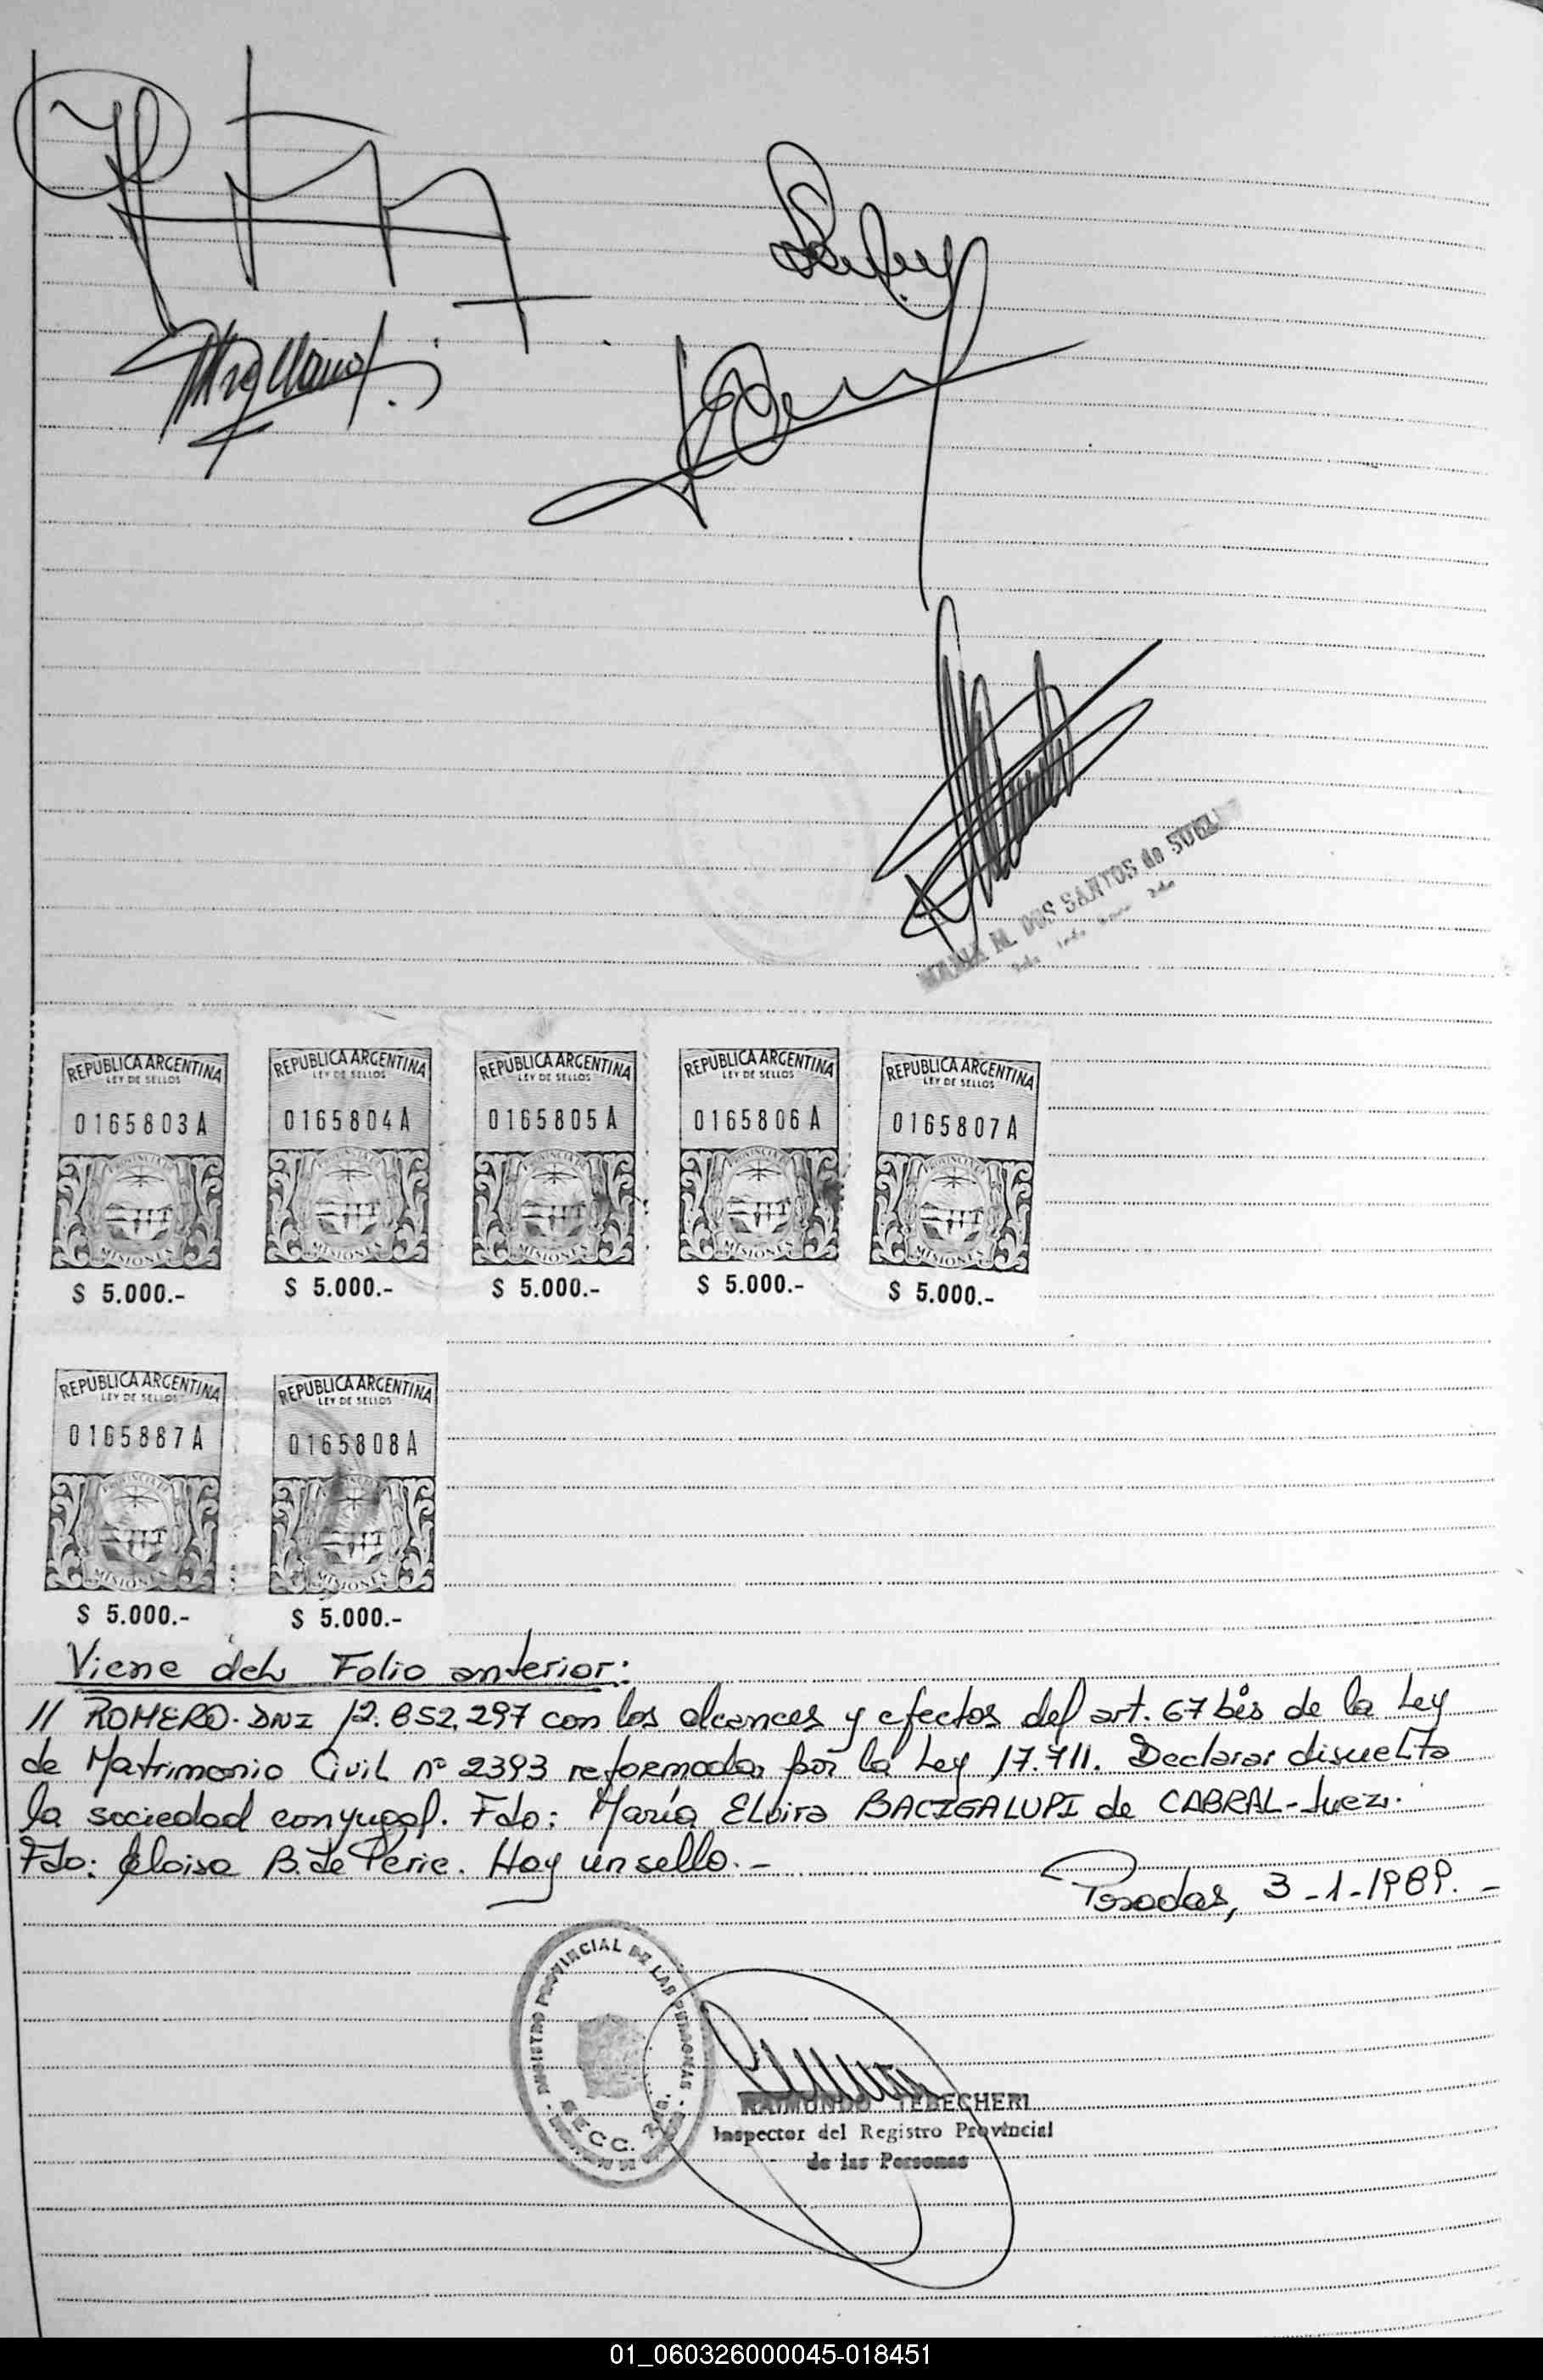 MARIA M. DOS SANTOS de
REPUBLICA ARGENTINA REPUBLICA ARGENTINA REPUBLICA ARGENTINA REPUBLICA ARGENTINA REPUBLICA ARGENTINA
LEY DE SELLOS LEY DE SELLOS LEY DE SELLOS LEY DE SELLOS LEY DE SELLOS
0165803A 0165804A 0165805A 0165806A 0165807A
PROVINCIA PROVINCIA PROVINCIA PROVINCIA PROVINCIA
MISIONES MISIONES MISIONES MISIONES MISIONES
$ 5.000.- $ 5.000.- $ 5.000.- $ 5.000.- $ 5.000.-
REPUBLICA ARGENTINA REPUBLICA ARGENTINA
LEY DE SELLOS LEY DE SELLOS
0165887A 0165808A
PROVINCIA PROVINCIA
MISIONES MISIONES
$ 5.000.- $ 5.000.-
Viene del Folio anterior:
// ROMERO. DNI 12.852.297 con los alcances y efectos del art. 67 bis de la Ley
de Matrimonio Civil nº 2393 reformada por la Ley 17.711. Declarar disuelta
la sociedad conyugal. Fdo: María Elvira BACIGALUPI de CABRAL-Juez.
Fdo: Eloisa B. de Perie. Hay un sello.-
Posadas, 3-1-1989.-
REGISTRO PROVINCIAL DE LAS PERSONAS
SECC. 2da.
RAIMUNDO TEBECHERI
Inspector del Registro Provincial
de las Personas
01_060326000045-018451